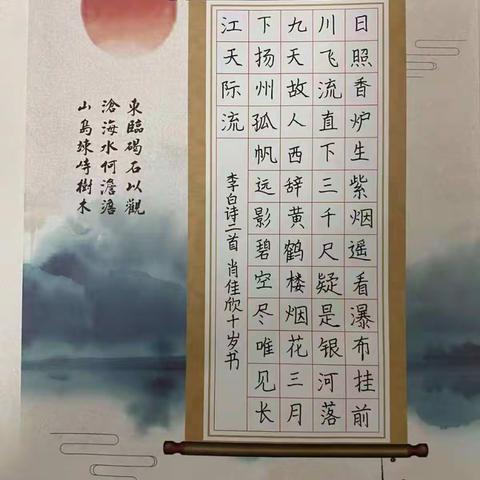 日照香炉生紫烟遥看瀑布挂前
川飞流直下三千尺疑是银河落
九天故人西辞黄鹤楼烟花三月
下扬州孤帆远影碧空尽唯见长
江天际流
李白诗二首 肖佳欣十岁书
東臨碣石以觀
滄海水何澹澹
山島竦峙樹木